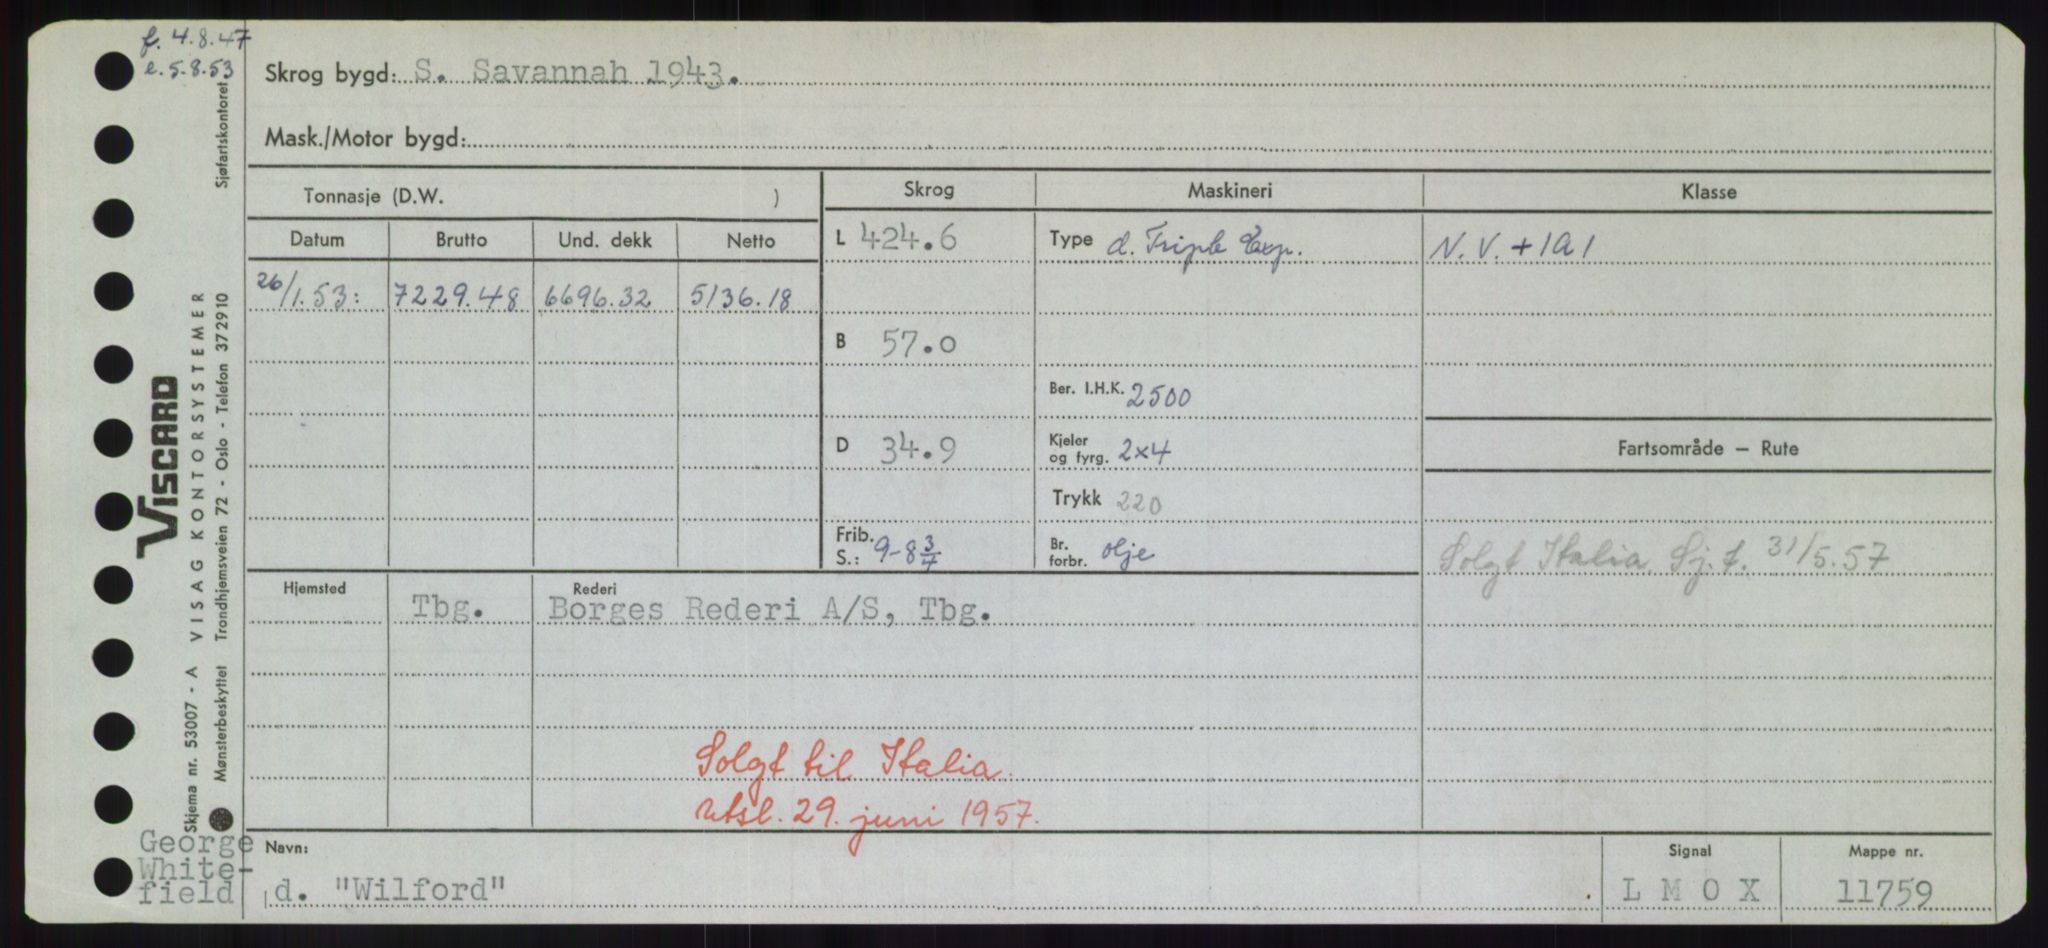 f. 4.8.47
e. 5.8.53
Skrog bygd: S. Savannah 1943.
Mask./Motor bygd:
Tonnasje (D.W. )
Skrog
Maskineri
Klasse
Datum Brutto Und. dekk Netto
26/1.53: 7229.48 6696.32 5136.18
L 424.6
Type d. Triple Exp.
N.V. + 1A1
B 57.0
Ber. I.H.K. 2500
D 34.9
Kjeler og fyrg. 2x4
Fartsområde — Rute
Trykk 220
Frib. S.: 9-8 3/4
Br. forbr. olje
Solgt Italia Sj.f. 31/5.57
Hjemsted
Rederi
Tbg. Borges Rederi A/S, Tbg.
Solgt til Italia.
utsl. 29. juni 1957.
Navn:
Signal
Mappe nr.
d. "Wilford"
L M O X
11759
George
White-
field
Sjøfartskontoret
VISCARD
VISAG KONTORSYSTEMER
Skjema nr. 53007 - A
Mønsterbeskyttet Trondhjemsveien 72 - Oslo - Telefon 372910